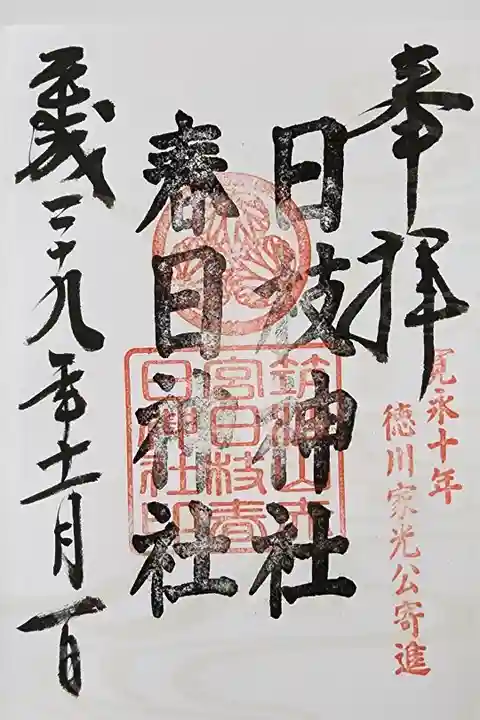 奉拝
寛永十年
徳川家光公寄進
日枝神社
春日神社
筑波山六
宮日枝春
日神社印
平成二十九年十一月一日